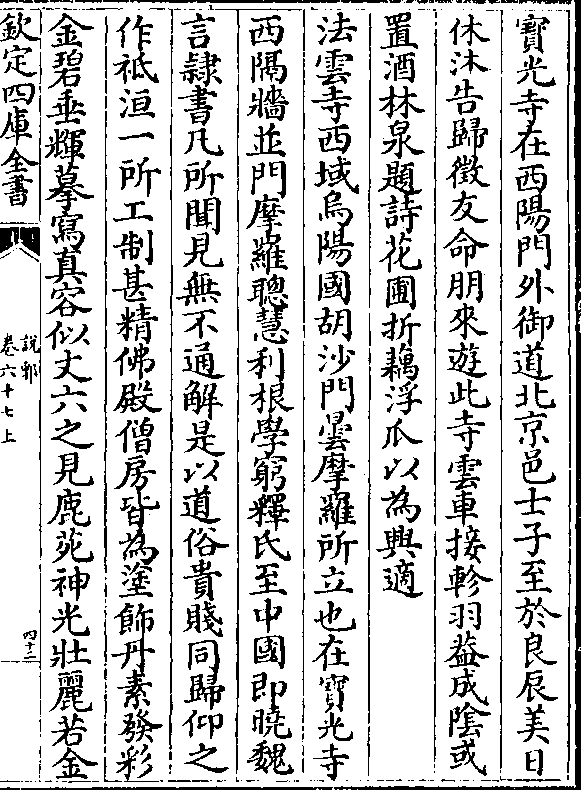 寶光寺在西陽門外御道北京邑士子至於良辰美日
休沐告歸徵友命朋來遊此寺雲車接軫羽葢成陰或
置酒林泉題詩花圃折藕浮瓜以為興適
法雲寺西域烏陽國胡沙門曇摩羅所立也在寶光寺
西隔牆並門摩羅聰慧利根學窮釋氏至中國即曉魏
言隷書凡所聞見無不通解是以道俗貴賤同歸仰之
作祗洹一所工制甚精佛殿僧房皆為塗飾丹素發彩
金碧垂輝摹寫真容似丈六之見鹿苑神光壯麗若金
欽定四庫全書
說郛
卷六十七上
四十二